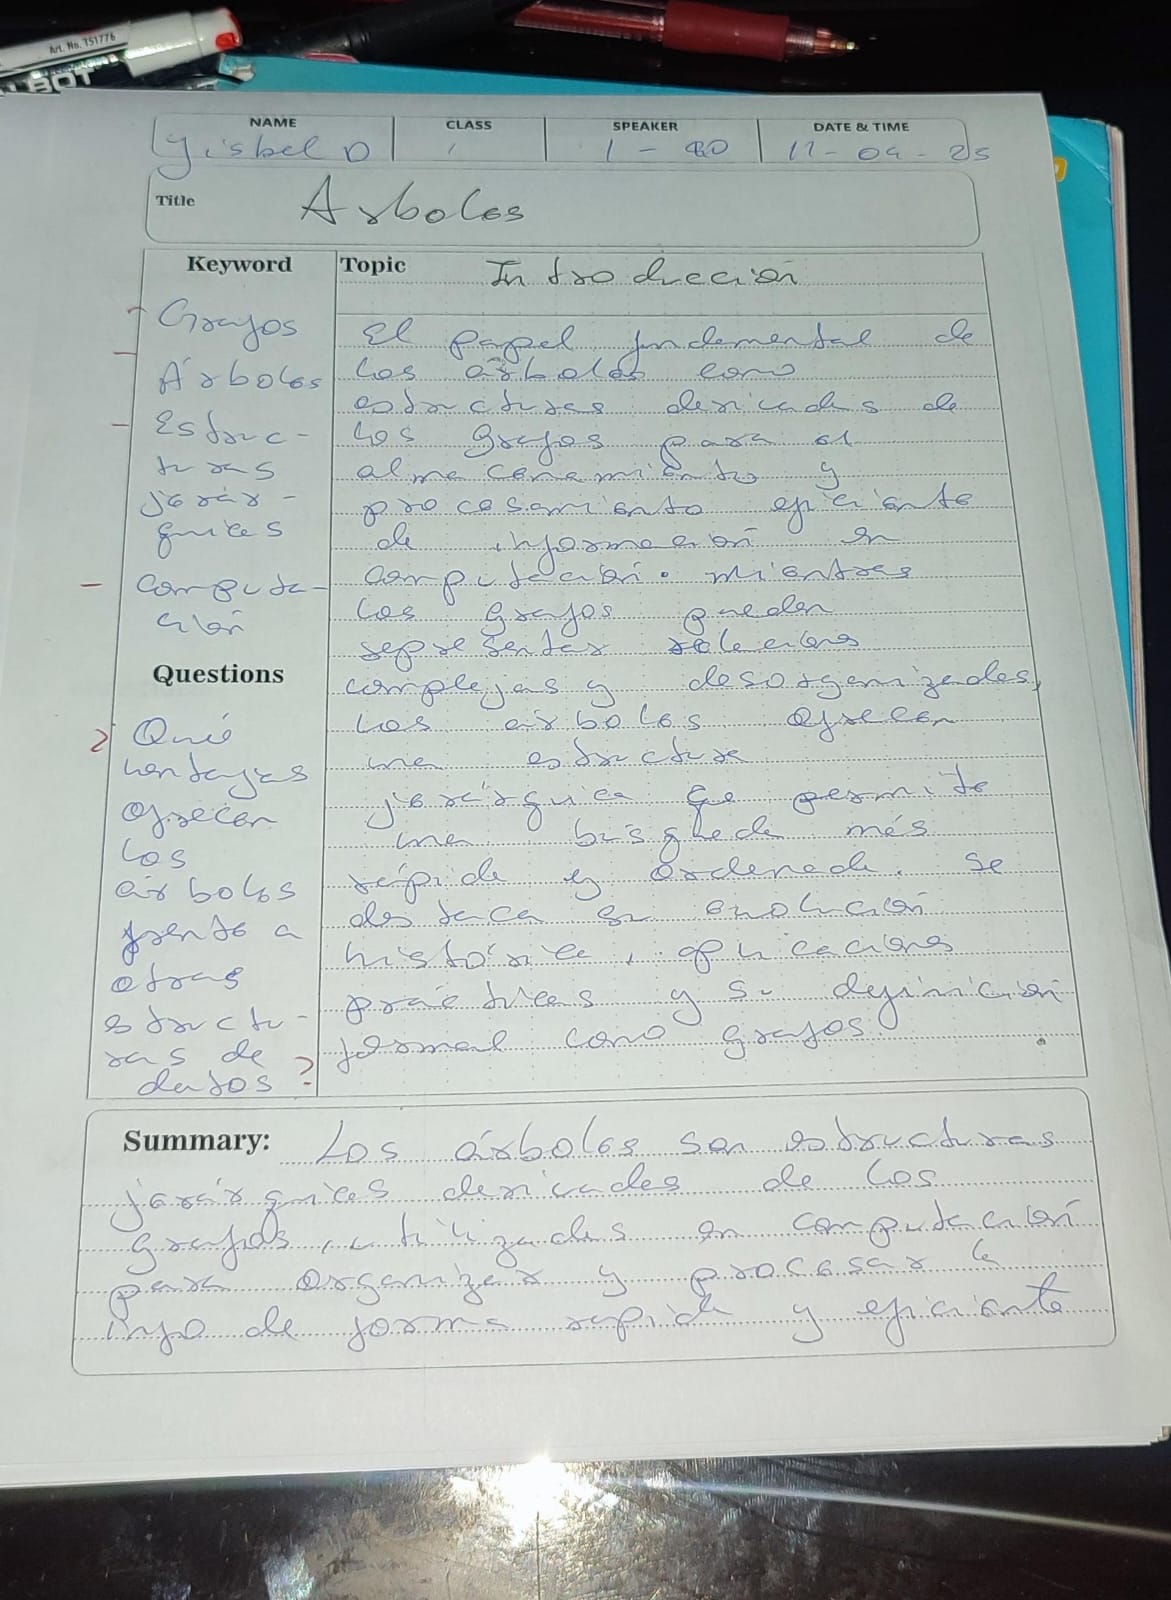 Art. No. 151776
BOT
NAME
CLASS
SPEAKER
DATE & TIME
Yisbel D
11-04-25
Title
Arboles
Keyword
Grafos
Árboles
Estruc-
turas
jerár-
quicas
computa-
ción
Questions
¿Qué
ventajas
ofrecen
los
árboles
frente a
otras
estructu-
ras de
datos?
Topic
Introducción
El papel fundamental de
los árboles como
estructuras derivadas de
los grafos para el
almacenamiento y
procesamiento eficiente
de información en
computación. mientras
los grafos pueden
representar relaciones
complejas y desorganizadas,
los árboles ofrecen
una estructura
jerárquica que permite
una búsqueda más
rápida y ordenada. Se
destaca su evolución
histórica, aplicaciones
prácticas y su definición
formal como grafos
Summary: Los árboles son estructuras
jerárquicas derivadas de los
grafos, utilizadas en computación
para organizar y procesar la
info de forma rápida y eficiente